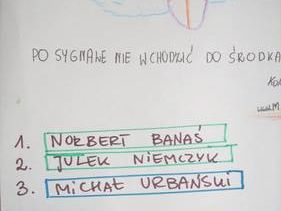 PO SYGNALE NIE WCHODZIĆ DO ŚRODKA
1. NORBERT BANAŚ
2. JULEK NIEMCZYK
3. MICHAŁ URBAŃSKI